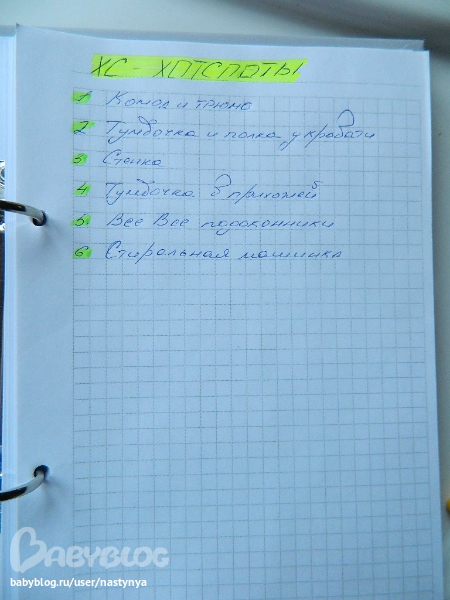 ХС - ХОТСПОТЫ
1 Комод и трюмо
2 Тумбочка и полка у кровати
3 Стенка
4 Тумбочка в прихожей
5. Все Все подоконники
6. Стиральная машинка
BABYBLOG
babyblog.ru/user/nastynya